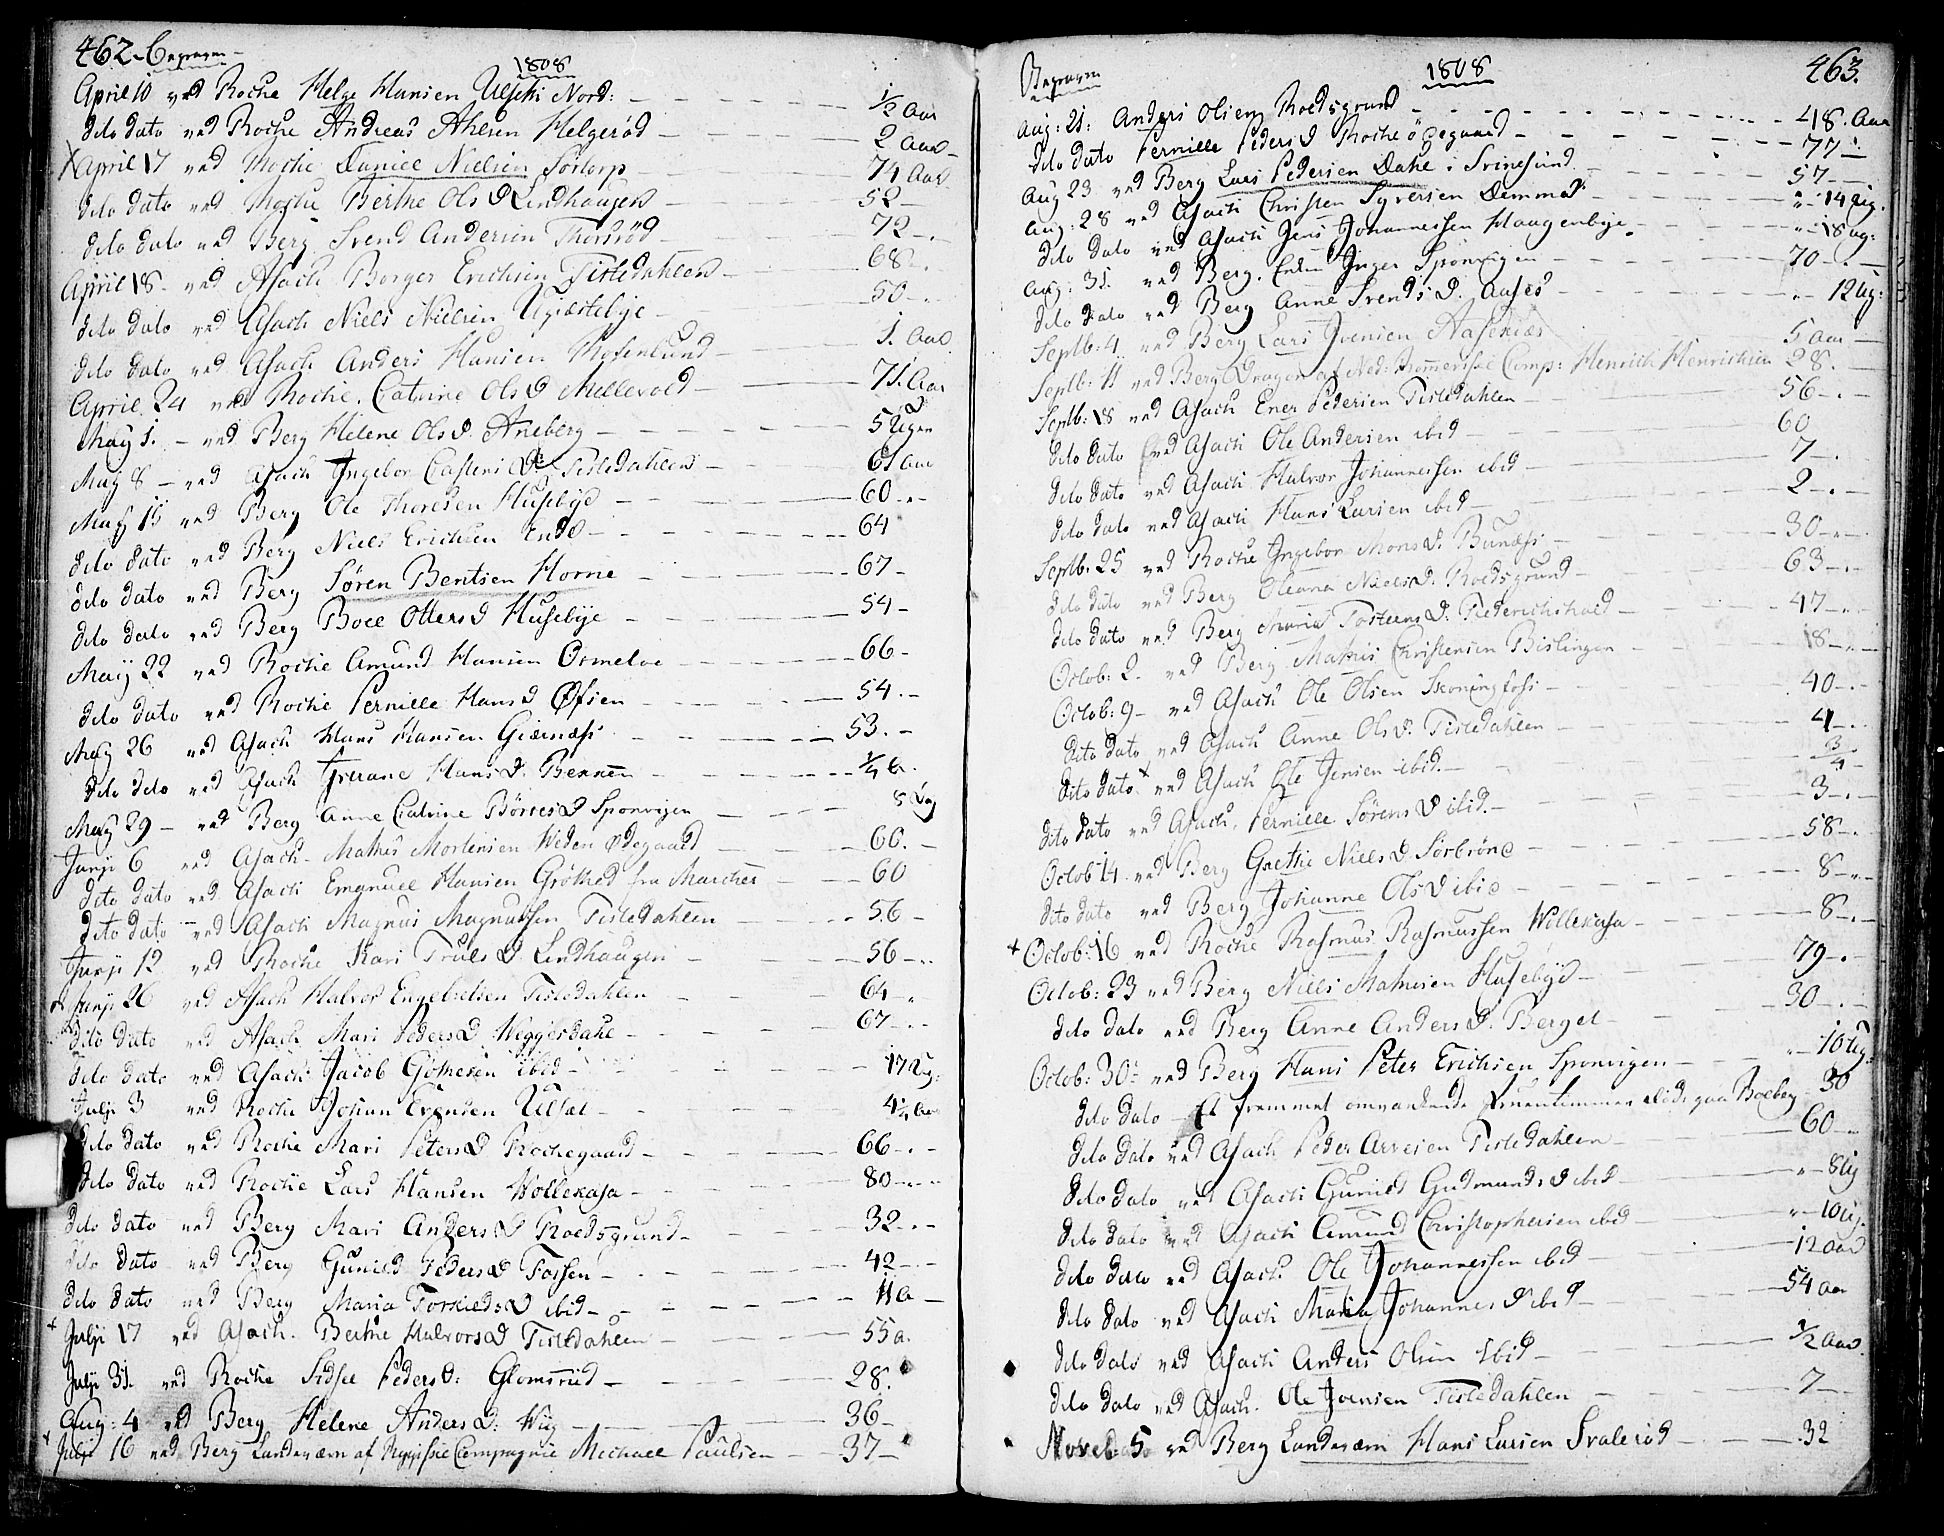 462. Begraven
1808
April 10 ved Rocke Helge Hansen Ulseki Nord: ½ Aar
dito dato ved Rocke Andreas Ahlsen Helgerød 2 Aar
April 17 ved Rocke Daniel Nielsen Sørtorp 74 Aar
dito dato ved Rocke Berthe Ols D Lindhaugen 52
dito dato ved Berg Svend Andersen Thorsrød 72
April 18 ved Asack Borger Erichsen Tistedahlen 68
dito dato ved Asack Niels Nielsen 50
dito dato ved Asack Anders Hansen Rosenlund 1. Aar
April 24 ved Rocke Catrine Ols D Mellevold 71. Aar
May 1. ved Berg Helene Ols D. Aneberg 5 Uger
May 8 ved Asack Ingebor Castens D: Tistedahlen 61 Aar
May 15 ved Berg Ole Thoresen Husebye 60
dito dato ved Berg Niels Erichsen Ende 64
dito dato ved Berg Søren Bentsen Horne 67
dito dato ved Berg Boel Otters D Husebye 54
May 22 ved Rocke Amund Hansen Ormeloe 66
dito dato ved Rocke Pernille Hans D Øfsen 54
May 26 ved Asack Hans Hansen Giærnæss 53.
dito dito ved Asack Hans D. ¼ a.
May 29 ved Berg Anne Catrine Børres D Sponvigen 8 Dag
Junji 6 ved Asack Mathis Mortensen Weden Ødegaard 66.
dito dato ved Asack Emanuel Hansen Grøthed fra Marcher 60
dito dato ved Asack Magnus Magnussen Tistedahlen 56
Junji 12 ved Rocke Kari Truls D. Lindhaugen 56
Junji 26 ved Asack Halvor Engebretsen Tistedahlen 64
dito dato ved Asack Mari Peders D Weggersdahl 67
dito dato ved Asack Jacob Gothesen ibid 17 Ug:
Julji 3 ved Rocke Johan Evensen Ulsæt 4¼ Aar
dito dato ved Rocke Mari Peters D Rockegaard 66
dito dato ved Rocke Lars Hansen Wollekasa 80
dito dato ved Berg Mari Anders D Roedsgrund 32
dito dato ved Berg Gunild Peders D Fossen 42
dito dato ved Berg Maria Torkieds D ibid 11 a
Julji 17 ved Asack. Berthe Halvors D Tistedahlen 55 a.
Julji 31. ved Rocke Sidsel Peders D: Glomsrud 28.
Aug: 4 ved Berg Helene Anders D: Wiig 36
Julji 16 ved Berg Landeværn af Ryggiske Compagnie Michael Paulsen 37
Begraven
1808
463.
Aug: 21: Anders Olsen Roedsgrund 48. Aar
dito dato Pernille Peders D Rocke ødegaard 77
Aug 23 ved Berg Lars Pedersen Dahl i Svinesund 57
Aug: 28 ved Asack Christen Syversen Demma 14 Ug.
dito dato ved Asack Jens Johannessen Haagenbye 18 ug:
Aug: 31. ved Berg. Enke Inger Sponvigen 70
dito dato ved Berg Anne Svends D. 12 Ug:
Septb: 4 ved Berg Lars Joensen 5 Aar
Septb: 11 ved Berg Dragon af Ned: Rommerske Comp: Henrich Henrichsen 28.
Septb: 18 ved Asack Ener Pedersen Tistedahlen 56
dito dato ved Asack Ole Andersen ibid 60
dito dato ved Asack Halvor Johannessen ibid 7
dito dato ved Asack Hans Larsen ibid 2
Septb: 25 ved Rocke Ingebor Mons D. Bunæss 30
dito dato ved Berg Oleana Niels D. Roedsgrund 63
dito dato ved Berg Maria Tostens D. Fiederichshald 47
Octob: 2. ved Berg Mathis Christensen Bislingen 18
Octob: 9 ved Asack Ole Olsen Skoningfoss 40
dito dato ved Asack Anne Ols D. Tistedahlen 4
dito dato ved Asack Ole Jensen ibid. ¾
dito dato ved Asack, Pernille Sørens D ibid. 3
Octob 14 ved Berg Grethe Niels D. Sørbrøne 58
dito dato ved Berg Johanne Ols D ibid 8
Octob: 16 ved Rocke Rasmus Rasmussen Wollekasa 8
Octob: 23 ved Berg Niels Mathisen Husebye 79
dito dato ved Berg Anne Anders D. Berget 30
Octob: 30 ved Berg Hans Peter Erichsen Sponvigen 10 Ug.
dito dato Et fremmet omvankende Fruentimmer 30
dito dato ved Asack Peder Arvesen Tistedahlen 60
dito dato ved Asack Gunild Gudmunds D ibid 8 Ug
dito dato ved Asack Amund Christophersen ibid 10 Ug.
dito dato ved Asack Ole Johannessen ibid 12 Aar
dito dato ved Asack Maria Johannes D ibid 54 Aar
dito dato ved Asack Anders Olsen ibid ½ Aar.
dito dato ved Asack. Ole Joensen Tistedahlen 7
Noveb: 5 ved Berg Landeværn Hans Larsen Svalerød 32